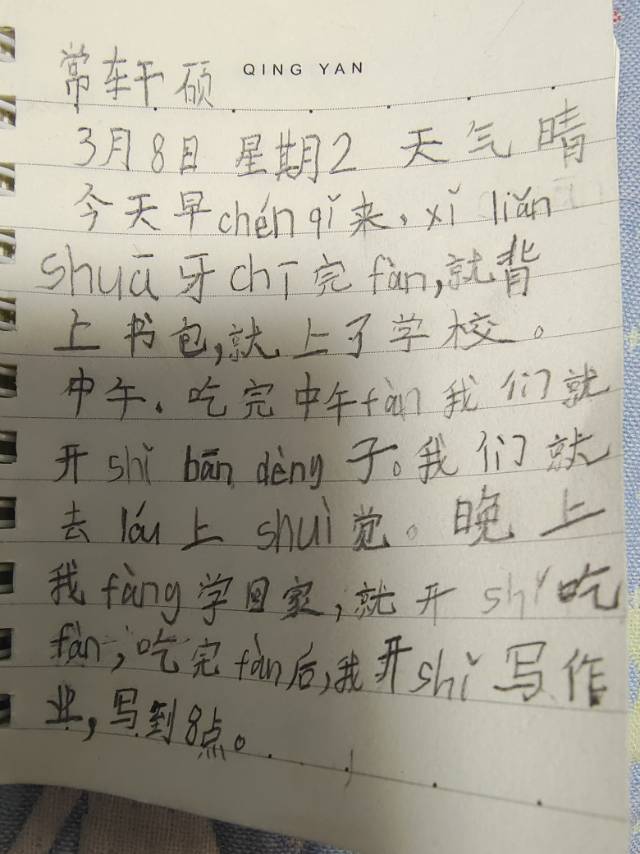 常轩硕 QING YAN
3月8日 星期2 天气晴
今天早chén qǐ来、xǐ liǎn
shuā牙chī完fàn,就背
上书包,就上了学校。
中午、吃完中午fàn我们就
开shǐ bān dèng子。我们就
去lóu上shuì觉。晚上
我fàng学回家,就开shǐ吃
fàn,吃完fàn后,我开shǐ写作
业,写到8点。